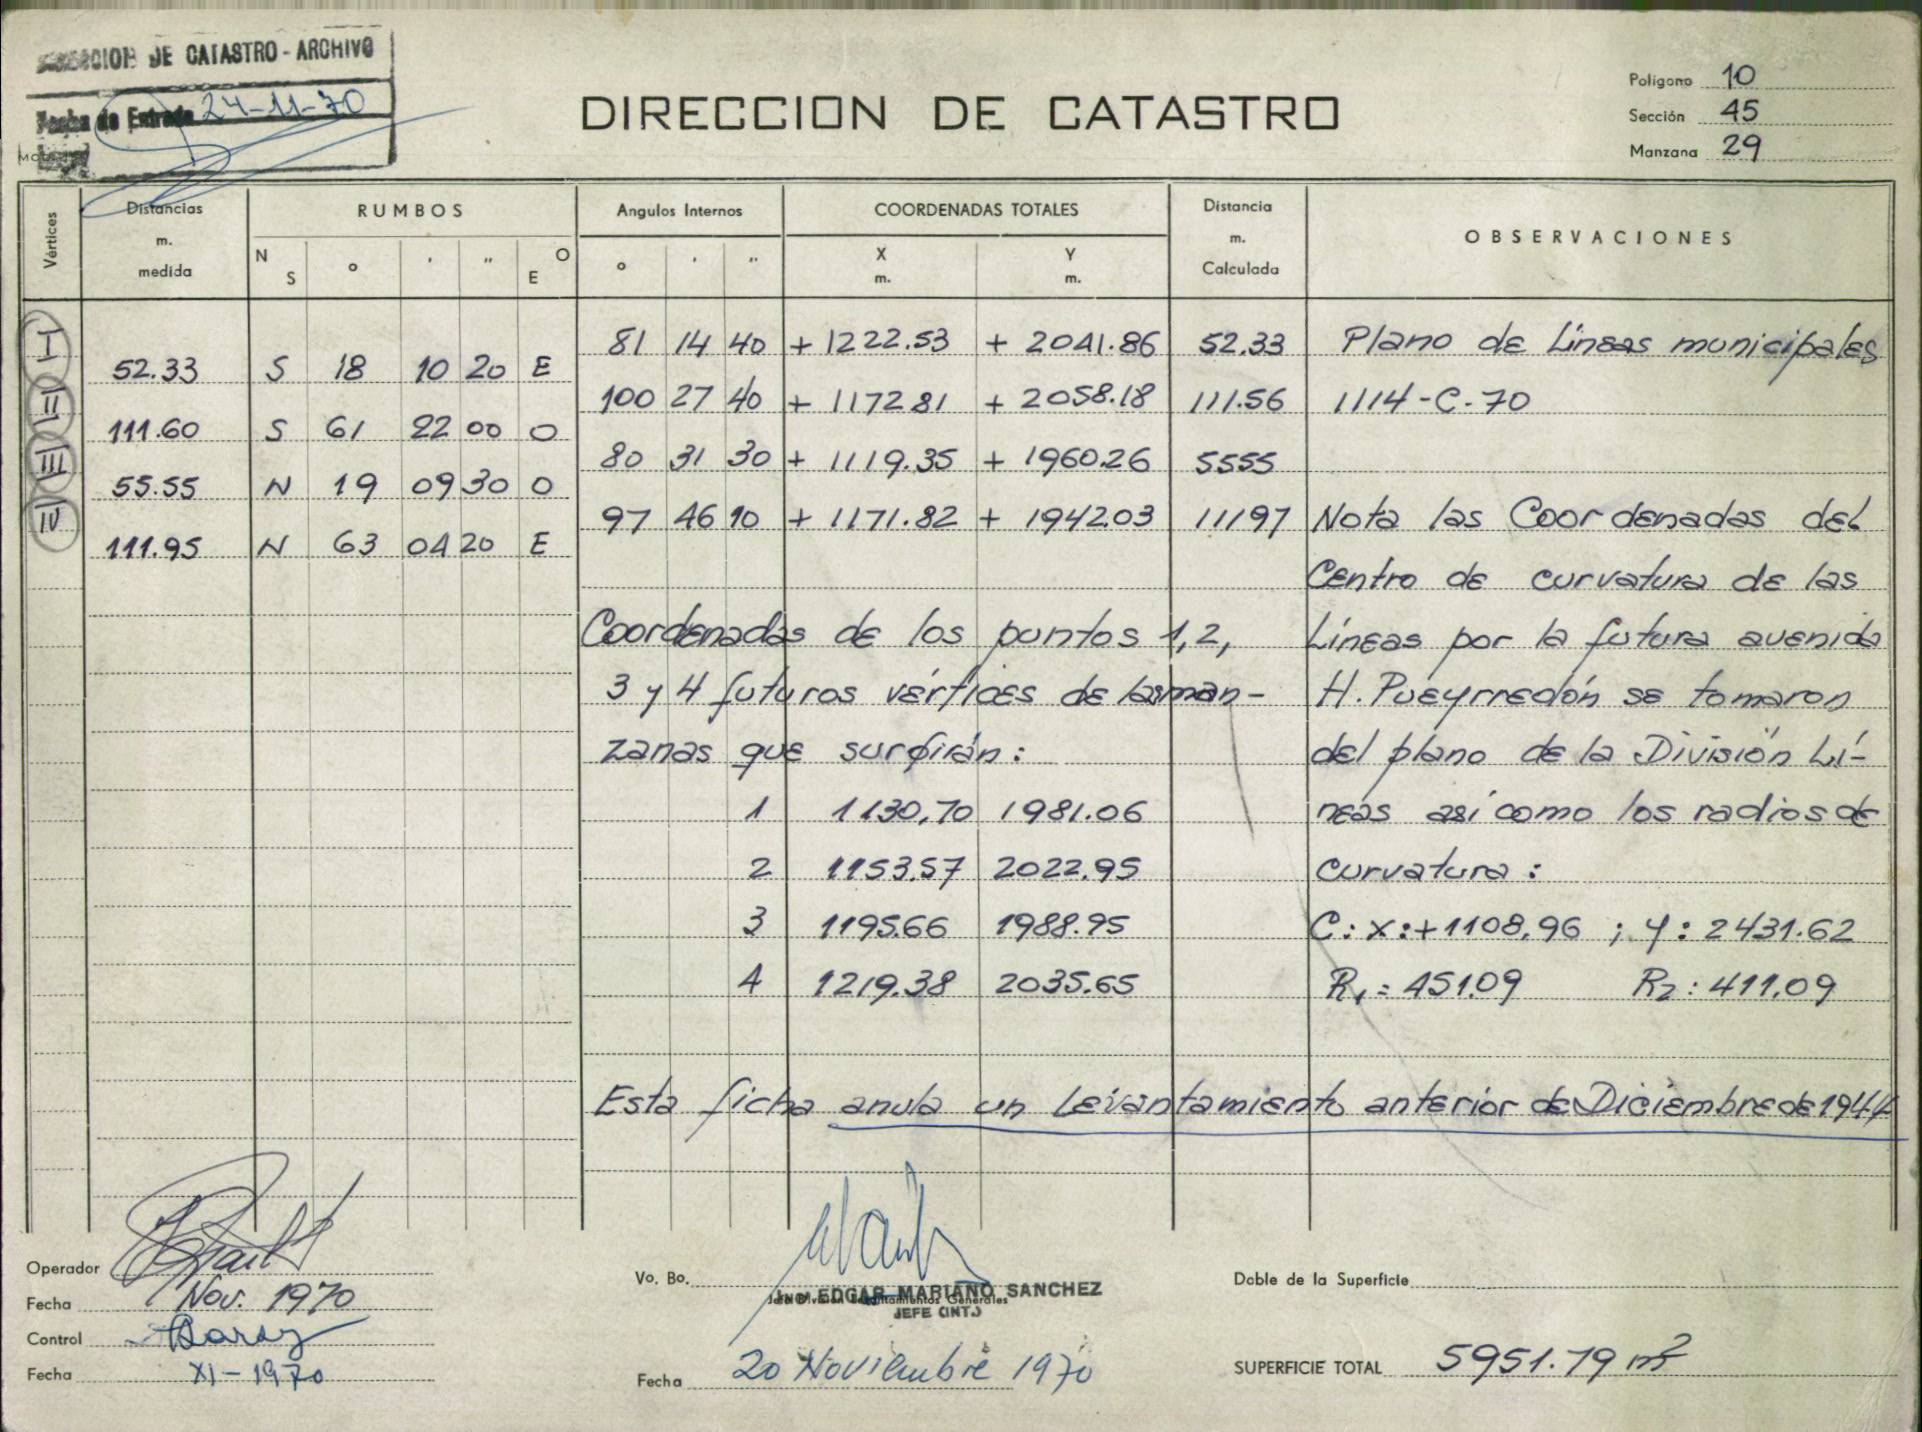 DE CATASTRO - ARCHIVO
Fecha de Entrada 24-11-70
DIRECCION DE CATASTRO
Polígono 10
Sección 45
Manzana 29
Vértices
Distancias m. medida
RUMBOS
N S o ' " O E
Angulos Internos
o ' "
COORDENADAS TOTALES
X m. Y m.
Distancia m. Calculada
OBSERVACIONES
I 81 14 40 + 1222.53 + 2041.86 52.33 Plano de Líneas municipales
52.33 S 18 10 20 E
II 100 27 40 + 1172.81 + 2058.18 111.56 1114-C-70
111.60 S 61 22 00 O
III 80 31 30 + 1119.35 + 1960.26 5555
55.55 N 19 09 30 O
IV 97 46 10 + 1171.82 + 1942.03 11197 Nota las Coordenadas del
111.95 N 63 04 20 E
Centro de curvatura de las
Líneas por la futura avenida
H. Pueyrredón se tomaron
del plano de la División Lí-
neas así como los radios de
curvatura:
C: x:+1108,96 ; y: 2431.62
R1: 451.09 R2: 411,09
Coordenadas de los puntos 1,2,
3 y 4 futuros vértices de las man-
zanas que surgirán:
1 1130,70 1981.06
2 1153.57 2022.95
3 1195.66 1988.95
4 1219.38 2035.65
Esta ficha anula un levantamiento anterior de Diciembre de 1944
Operador
Fecha Nov. 1970
Control
Fecha XI-1970
Vo. Bo.
ING. EDGAR MARIANO SANCHEZ
Jefe División Levantamientos Generales
JEFE (INT.)
Fecha 20 Noviembre 1970
Doble de la Superficie
SUPERFICIE TOTAL 5951.79 m²